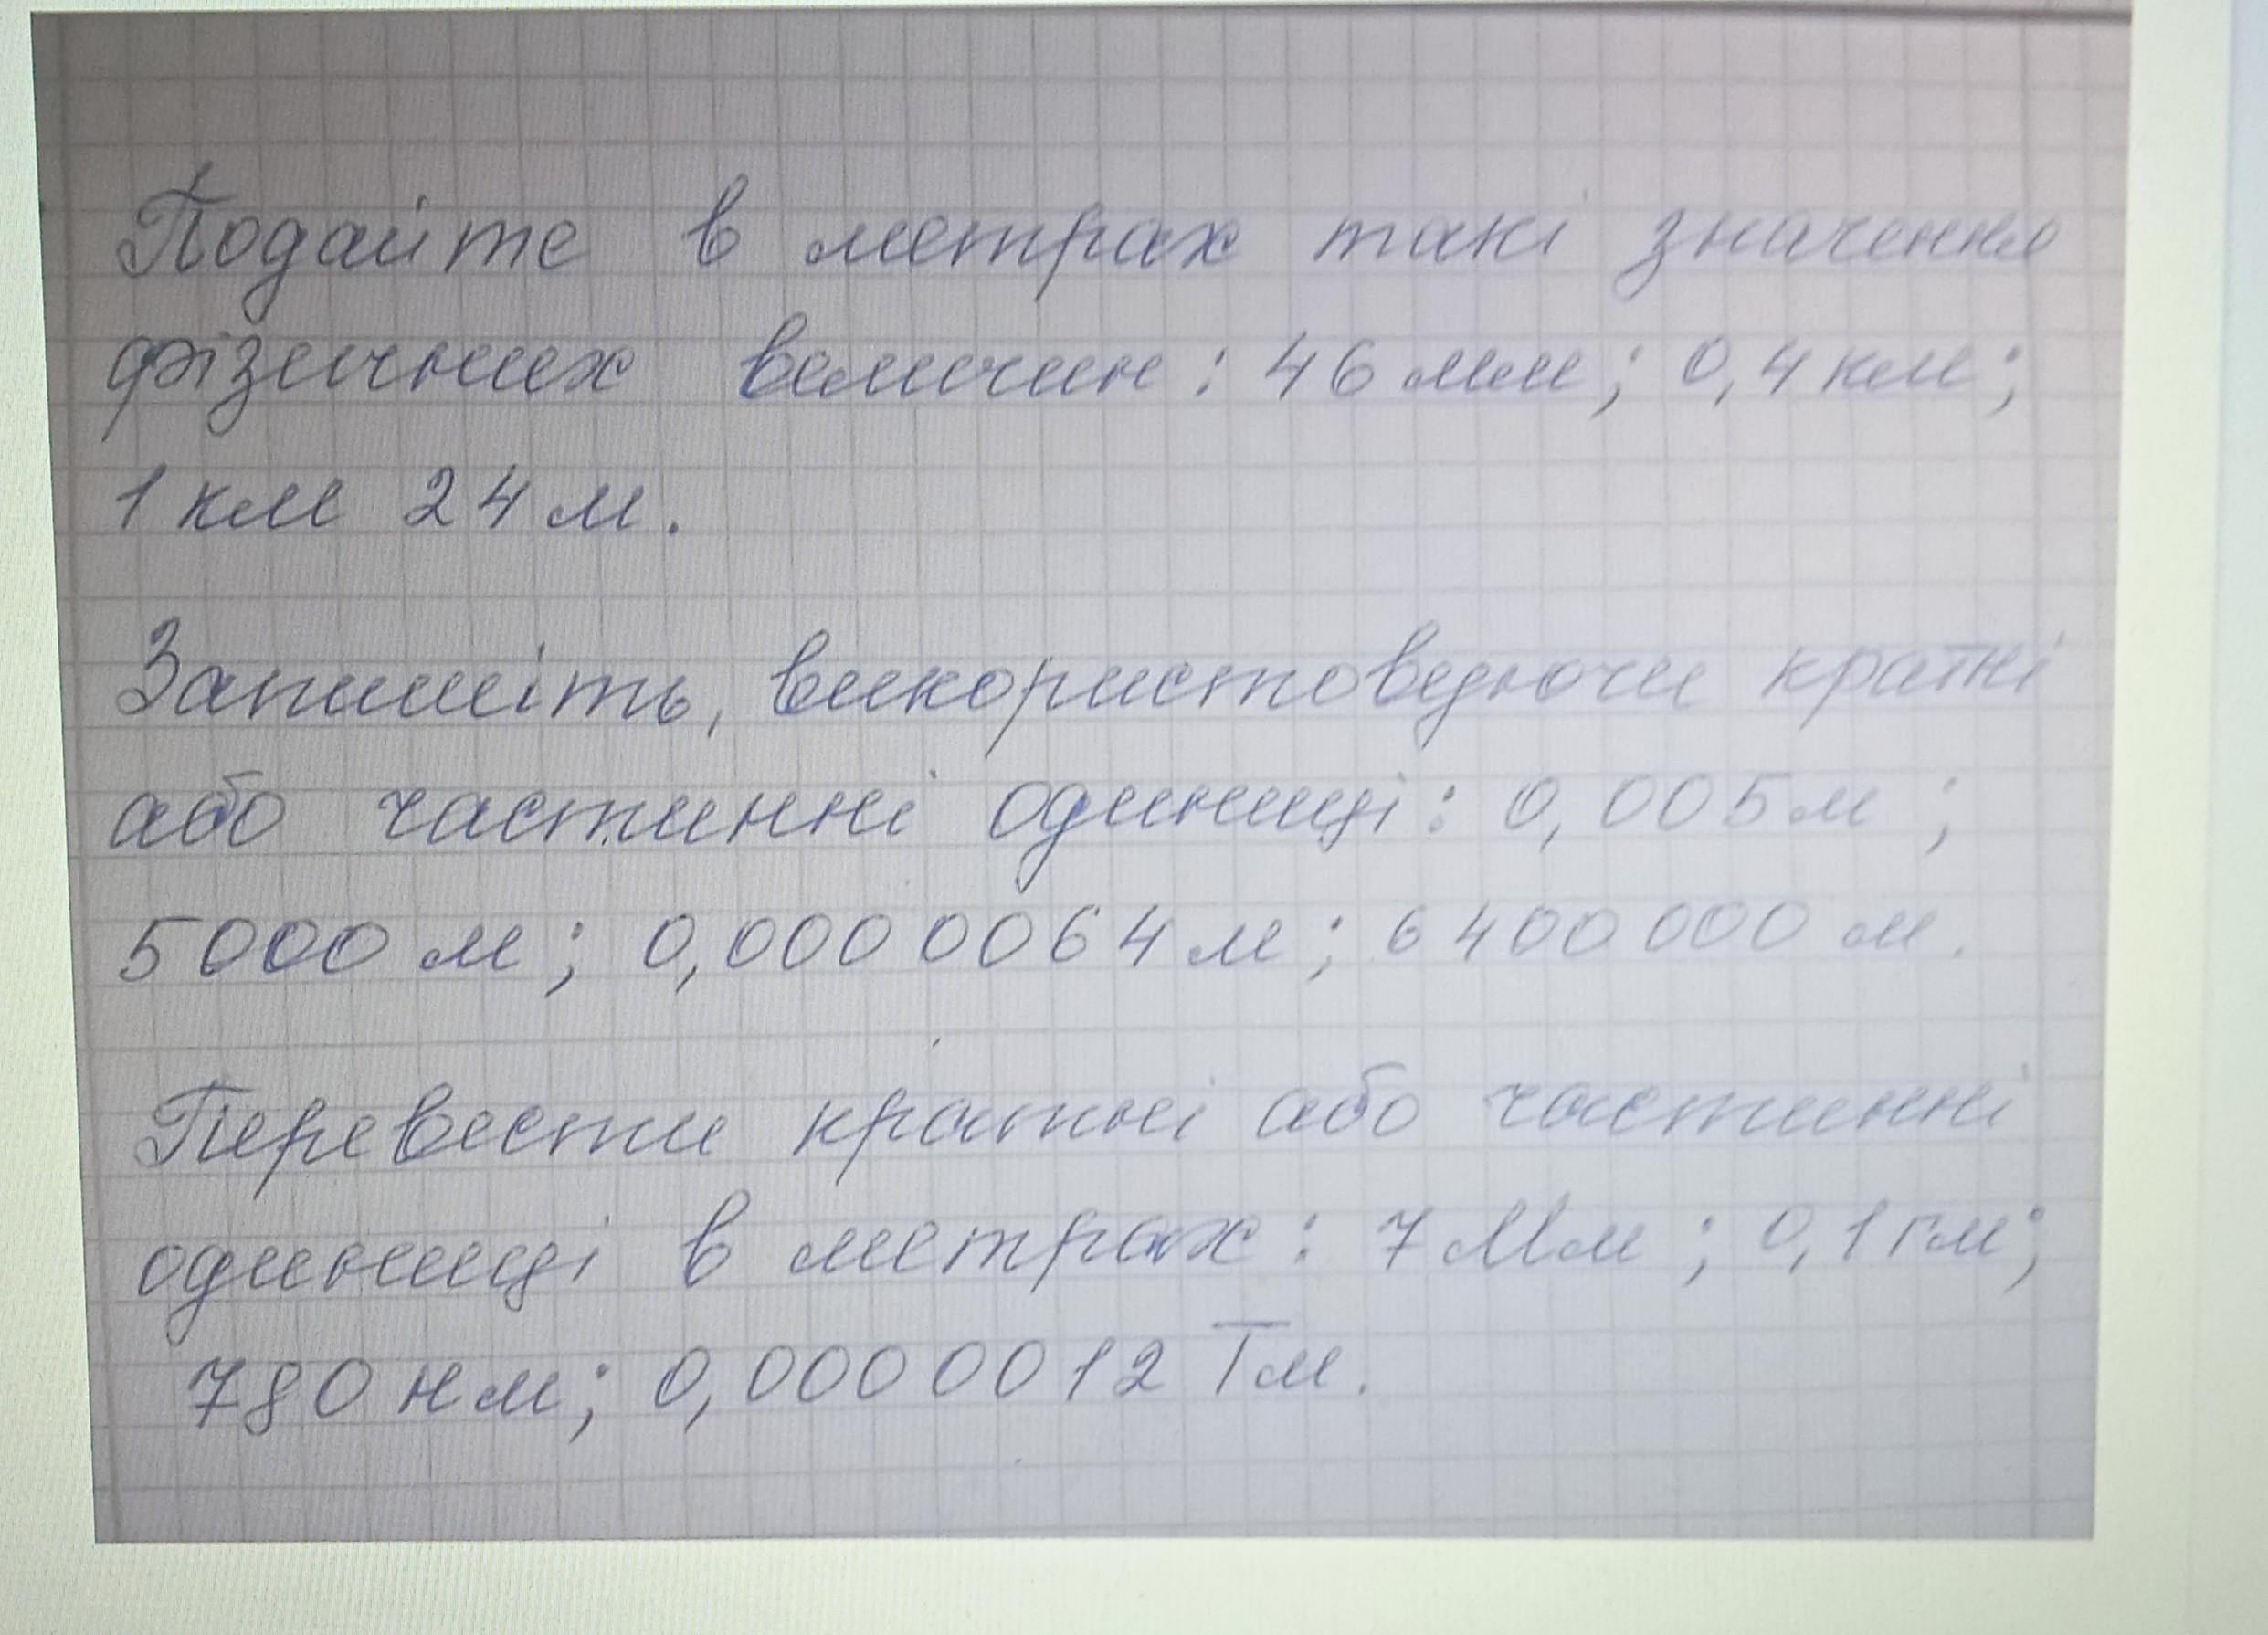 Подайте в метрах такі значення
фізичних величин: 46 мм; 0,4 км;
1 км 24 м.
Запишіть, використовуючи кратні
або частинні одиниці: 0,005 м;
5000 м; 0,0000064 м; 6400000 м.
Перевести кратні або частинні
одиниці в метрах: 7 Мм; 0,1 гм;
780 нм; 0,0000012 Тм.